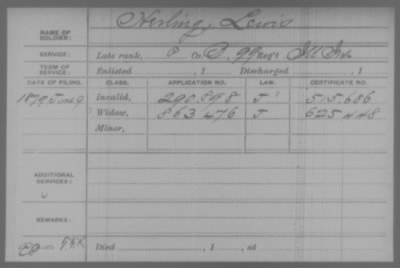 NAME OF SOLDIER: Herling, Lewis
SERVICE: Late rank, P Co. D, 99 Reg't Ill Inf.
TERM OF SERVICE: Enlisted , 1 Discharged , 1
DATE OF FILING. CLASS. APPLICATION NO. LAW. CERTIFICATE NO.
1879 June 9 Invalid, 290.898 J 515.686
Widow, 863476 J 625448
Minor,
ADDITIONAL SERVICES:
REMARKS:
Died , 1 , at